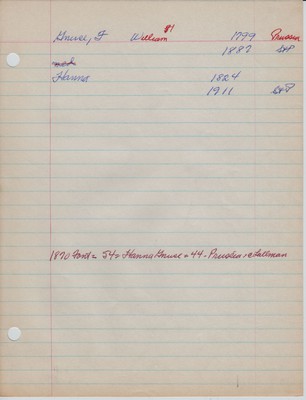 #1
Gruse, F William 1799 Prussia
1887 S+P
Hanna 1824
1911 S+P
1870 Ford = 54 = Hanna Gruse = 44 - Prussia